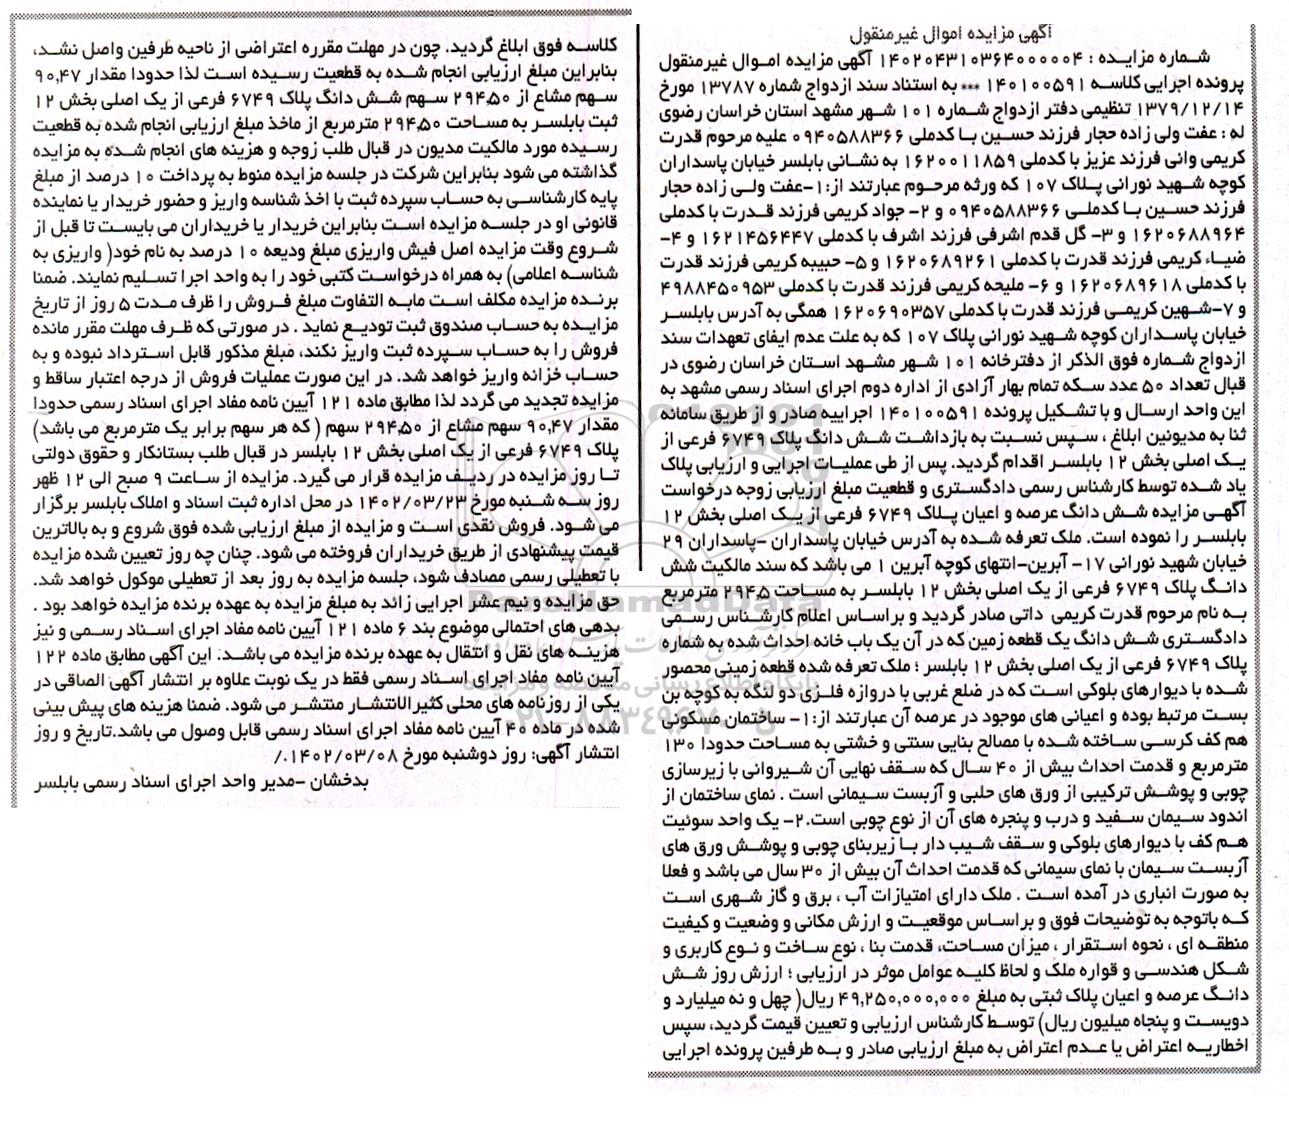 آگهی مزایده اموال غیرمنقول
شماره مزایده : ۱۴۰۲۰۴۳۱۰۳۶۴۰۰۰۰۰۴ آگهی مزایده اموال غیرمنقول
پرونده اجرایی کلاسه ۱۴۰۱۰۰۵۹۱ *** به استناد سند ازدواج شماره ۱۳۷۸۷ مورخ
۱۳۷۹/۱۲/۱۴ تنظیمی دفتر ازدواج شماره ۱۰۱ شهر مشهد استان خراسان رضوی
له : عفت ولی زاده حجار فرزند حسین با کدملی ۰۹۴۰۵۸۸۳۶۶ علیه مرحوم قدرت
کریمی وانی فرزند عزیز با کدملی ۱۶۲۰۰۱۱۸۵۹ به نشانی بابلسر خیابان پاسداران
کوچه شهید نورانی پلاک ۱۰۷ که ورثه مرحوم عبارتند از:۱-عفت ولی زاده حجار
فرزند حسین با کدملی ۰۹۴۰۵۸۸۳۶۶ و ۲- جواد کریمی فرزند قدرت با کدملی
۱۶۲۰۶۸۸۹۶۴ و ۳- گل قدم اشرفی فرزند اشرف با کدملی ۱۶۲۱۴۵۶۴۴۷ و ۴-
ضیاء کریمی فرزند قدرت با کدملی ۱۶۲۰۶۸۹۲۶۱ و ۵- حبیبه کریمی فرزند قدرت
با کدملی ۱۶۲۰۶۸۹۶۱۸ و ۶- ملیحه کریمی فرزند قدرت با کدملی ۴۹۸۸۴۵۰۹۵۳
و ۷-شهین کریمی فرزند قدرت با کدملی ۱۶۲۰۶۹۰۳۵۷ همگی به آدرس بابلسر
خیابان پاسداران کوچه شهید نورانی پلاک ۱۰۷ که به علت عدم ایفای تعهدات سند
ازدواج شماره فوق الذکر از دفترخانه ۱۰۱ شهر مشهد استان خراسان رضوی در
قبال تعداد ۵۰ عدد سکه تمام بهار آزادی از اداره دوم اجرای اسناد رسمی مشهد به
این واحد ارسال و با تشکیل پرونده ۱۴۰۱۰۰۵۹۱ اجراییه صادر و از طریق سامانه
ثنا به مدیونین ابلاغ ، سپس نسبت به بازداشت شش دانگ پلاک ۶۷۴۹ فرعی از
یک اصلی بخش ۱۲ بابلسر اقدام گردید. پس از طی عملیات اجرایی و ارزیابی پلاک
یاد شده توسط کارشناس رسمی دادگستری و قطعیت مبلغ ارزیابی زوجه درخواست
آگهی مزایده شش دانگ عرصه و اعیان پلاک ۶۷۴۹ فرعی از یک اصلی بخش ۱۲
بابلسر را نموده است. ملک تعرفه شده به آدرس خیابان پاسداران -پاسداران ۲۹
خیابان شهید نورانی ۱۷- آبرین-انتهای کوچه آبرین ۱ می باشد که سند مالکیت شش
دانگ پلاک ۶۷۴۹ فرعی از یک اصلی بخش ۱۲ بابلسر به مساحت ۲۹۴,۵ مترمربع
به نام مرحوم قدرت کریمی داتی صادر گردید و براساس اعلام کارشناس رسمی
دادگستری شش دانگ یک قطعه زمین که در آن یک باب خانه احداث شده به شماره
پلاک ۶۷۴۹ فرعی از یک اصلی بخش ۱۲ بابلسر ؛ ملک تعرفه شده قطعه زمینی محصور
شده با دیوارهای بلوکی است که در ضلع غربی با دروازه فلزی دو لنگه به کوچه بن
بست مرتبط بوده و اعیانی های موجود در عرصه آن عبارتند از:۱- ساختمان مسکونی
هم کف کرسی ساخته شده با مصالح بنایی سنتی و خشتی به مساحت حدودا ۱۳۰
مترمربع و قدمت احداث بیش از ۴۰ سال که سقف نهایی آن شیروانی با زیرسازی
چوبی و پوشش ترکیبی از ورق های حلبی و آزبست سیمانی است . نمای ساختمان از
اندود سیمان سفید و درب و پنجره های آن از نوع چوبی است.۲- یک واحد سوئیت
هم کف با دیوارهای بلوکی و سقف شیب دار با زیربنای چوبی و پوشش ورق های
آزبست سیمان با نمای سیمانی که قدمت احداث آن بیش از ۳۰ سال می باشد و فعلا
به صورت انباری در آمده است . ملک دارای امتیازات آب ، برق و گاز شهری است
که باتوجه به توضیحات فوق و براساس موقعیت و ارزش مکانی و وضعیت و کیفیت
منطقه ای ، نحوه استقرار ، میزان مساحت، قدمت بنا ، نوع ساخت و نوع کاربری و
شکل هندسی و قواره ملک و لحاظ کلیه عوامل موثر در ارزیابی ؛ ارزش روز شش
دانگ عرصه و اعیان پلاک ثبتی به مبلغ ۴۹,۲۵۰,۰۰۰,۰۰۰ ریال( چهل و نه میلیارد و
دویست و پنجاه میلیون ریال) توسط کارشناس ارزیابی و تعیین قیمت گردید، سپس
اخطاریه اعتراض یا عدم اعتراض به مبلغ ارزیابی صادر و به طرفین پرونده اجرایی
کلاسه فوق ابلاغ گردید. چون در مهلت مقرره اعتراضی از ناحیه طرفین واصل نشد،
بنابراین مبلغ ارزیابی انجام شده به قطعیت رسیده است لذا حدودا مقدار ۹۰,۴۷
سهم مشاع از ۲۹۴,۵۰ سهم شش دانگ پلاک ۶۷۴۹ فرعی از یک اصلی بخش ۱۲
ثبت بابلسر به مساحت ۲۹۴,۵۰ مترمربع از ماخذ مبلغ ارزیابی انجام شده به قطعیت
رسیده مورد مالکیت مدیون در قبال طلب زوجه و هزینه های انجام شده به مزایده
گذاشته می شود بنابراین شرکت در جلسه مزایده منوط به پرداخت ۱۰ درصد از مبلغ
پایه کارشناسی به حساب سپرده ثبت با اخذ شناسه واریز و حضور خریدار یا نماینده
قانونی او در جلسه مزایده است بنابراین خریدار یا خریداران می بایست تا قبل از
شروع وقت مزایده اصل فیش واریزی مبلغ ودیعه ۱۰ درصد به نام خود( واریزی به
شناسه اعلامی) به همراه درخواست کتبی خود را به واحد اجرا تسلیم نمایند. ضمنا
برنده مزایده مکلف است مابه التفاوت مبلغ فروش را ظرف مدت ۵ روز از تاریخ
مزایده به حساب صندوق ثبت تودیع نماید . در صورتی که ظرف مهلت مقرر مانده
فروش را به حساب سپرده ثبت واریز نکند، مبلغ مذکور قابل استرداد نبوده و به
حساب خزانه واریز خواهد شد. در این صورت عملیات فروش از درجه اعتبار ساقط و
مزایده تجدید می گردد لذا مطابق ماده ۱۲۱ آیین نامه مفاد اجرای اسناد رسمی حدودا
مقدار ۹۰,۴۷ سهم مشاع از ۲۹۴,۵۰ سهم ( که هر سهم برابر یک مترمربع می باشد)
پلاک ۶۷۴۹ فرعی از یک اصلی بخش ۱۲ بابلسر در قبال طلب بستانکار و حقوق دولتی
تا روز مزایده در ردیف مزایده قرار می گیرد. مزایده از ساعت ۹ صبح الی ۱۲ ظهر
روز سه شنبه مورخ ۱۴۰۲/۰۳/۲۳ در محل اداره ثبت اسناد و املاک بابلسر برگزار
می شود. فروش نقدی است و مزایده از مبلغ ارزیابی شده فوق شروع و به بالاترین
قیمت پیشنهادی از طریق خریداران فروخته می شود. چنان چه روز تعیین شده مزایده
با تعطیلی رسمی مصادف شود، جلسه مزایده به روز بعد از تعطیلی موکول خواهد شد.
حق مزایده و نیم عشر اجرایی زائد به مبلغ مزایده به عهده برنده مزایده خواهد بود .
بدهی های احتمالی موضوع بند ۶ ماده ۱۲۱ آیین نامه مفاد اجرای اسناد رسمی و نیز
هزینه های نقل و انتقال به عهده برنده مزایده می باشد. این آگهی مطابق ماده ۱۲۲
آیین نامه مفاد اجرای اسناد رسمی فقط در یک نوبت علاوه بر انتشار آگهی الصاقی در
یکی از روزنامه های محلی کثیرالانتشار منتشر می شود. ضمنا هزینه های پیش بینی
شده در ماده ۴۰ آیین نامه مفاد اجرای اسناد رسمی قابل وصول می باشد.تاریخ و روز
انتشار آگهی: روز دوشنبه مورخ ۱۴۰۲/۰۳/۰۸./
بدخشان -مدیر واحد اجرای اسناد رسمی بابلسر
ParsNamadData
پایگاه اطلاع رسانی مناقصه و مزایده
۰۲۱-۸۸۳۴۹۶۷۰-۵